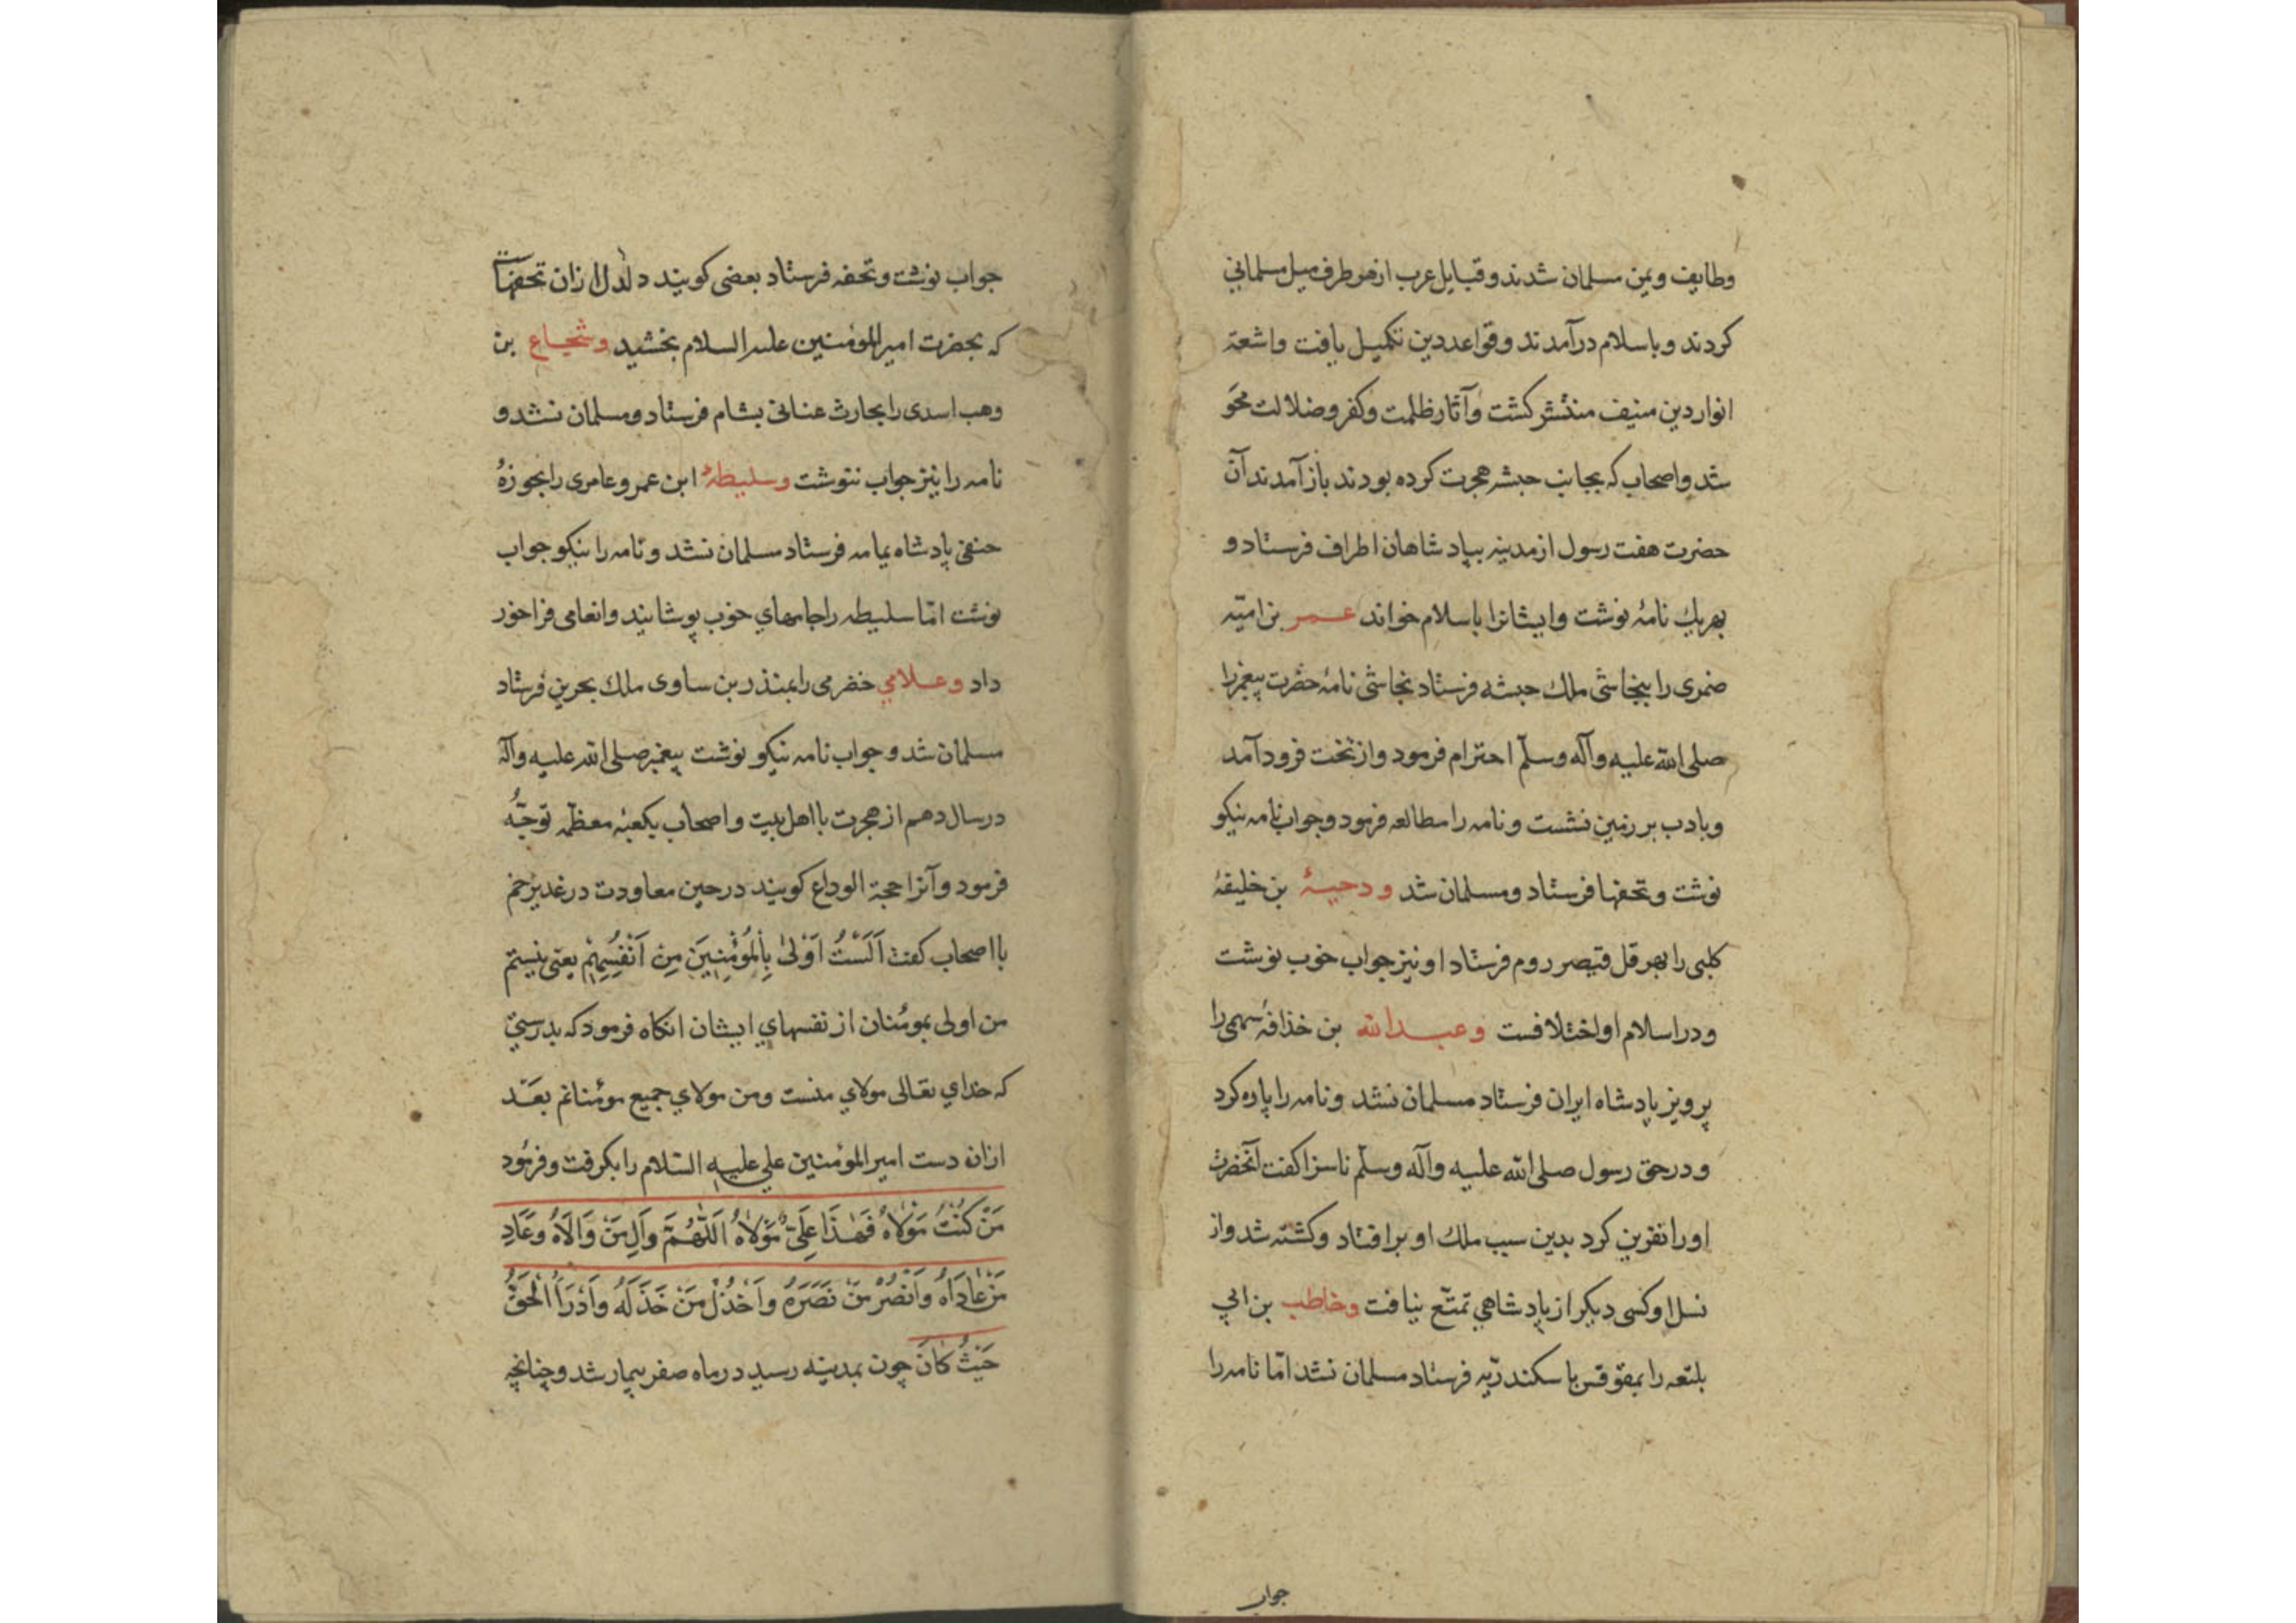 وطایف ویمن مسلمان شدند وقبایل عرب از هر طرف میل مسلمانی
کردند وباسلام درآمدند وقواعد دین تکمیل یافت واشعهٔ
انوار دین منیف منتشر کشت وآثار ظلمت وکفر وضلالت محو
شد واصحاب که بجانب حبشه هجرت کرده بودند باز آمدند آن
حضرت هفت رسول از مدینه بپادشاهان اطراف فرستاد و
بهریك نامهٔ نوشت وایشانرا باسلام خواند عمر بن امیّه
ضمری را بنجاشی ملك حبشه فرستاد نجاشی نامهٔ حضرت پیغمبرا
صلی الله علیه وآله وسلّم احترام فرمود واز تخت فرود آمد
وبادب بر زمین نشست ونامه را مطالعه فرمود وجواب نامه نیکو
نوشت وتحفها فرستاد ومسلمان شد ودحیهٔ بن خلیفهٔ
کلبی را بهرقل قیصر روم فرستاد او نیز جواب خوب نوشت
ودر اسلام او اختلافست وعبدالله بن خذافهٔ سهمی را
پرویز پادشاه ایران فرستاد مسلمان نشد ونامه را پاره کرد
ودر حق رسول صلی الله علیه وآله وسلّم ناسزا کفت آنحضرت
اورا نفرین کرد بدین سبب ملك او برافتاد وکشته شد واز
نسل او کسی دیکر از پادشاهی تمتّع نیافت وخاطب بن ابی
بلتعه را بمقوقس باسکندریّه فرستاد مسلمان نشد امّا نامه را
جواب
جواب نوشت وتحفه فرستاد بعضی کویند دلدل ازان تحفهاست
که بحضرت امیرالمؤمنین علیه السلام بخشید وشجاع بن
وهب اسدی را بحارث عنانی بشام فرستاد ومسلمان نشد و
نامه را نیز جواب ننوشت وسلیطه ابن عمرو عامری را بجوزهٔ
حنفی پادشاه یمامه فرستاد مسلمان نشد ونامه را نیکو جواب
نوشت امّا سلیطه را جامهای خوب پوشانید وانعامی فراخور
داد وعلامی خضرمی را بمنذر بن ساوی ملك بحرین فرستاد
مسلمان شد وجواب نامه نیکو نوشت پیغمبر صلی الله علیه وآله
در سال دهم از هجرت با اهل بیت واصحاب بکعبهٔ معظمه توجّه
فرمود وآنرا حجة الوداع کویند در حین معاودت در غدیر خم
با اصحاب کفت اَلَسْتُ اَوْلیٰ بِالْمُؤْمِنِینَ مِنْ اَنْفُسِهِمْ یعنی نیستم
من اولی بمؤمنان از نفسهای ایشان انکاه فرمود که بدرستی
که خدای تعالی مولای منست ومن مولای جمیع مؤمنانم بعد
ازان دست امیرالمؤمنین علی علیه السّلام را بکرفت وفرمود
مَنْ کُنْتُ مَوْلَاهُ فَهٰذَا عَلِیٌّ مَوْلَاهُ اَللّٰهُمَّ وَالِ مَنْ وَالَاهُ وَعَادِ
مَنْ عَادَاهُ وَانْصُرْ مَنْ نَصَرَهُ وَاخْذُلْ مَنْ خَذَلَهُ وَاَدْرَاُ الْحَقَّ
حَیْثُ کَانَ چون بمدینه رسید در ماه صفر بیمار شد وچنانچه